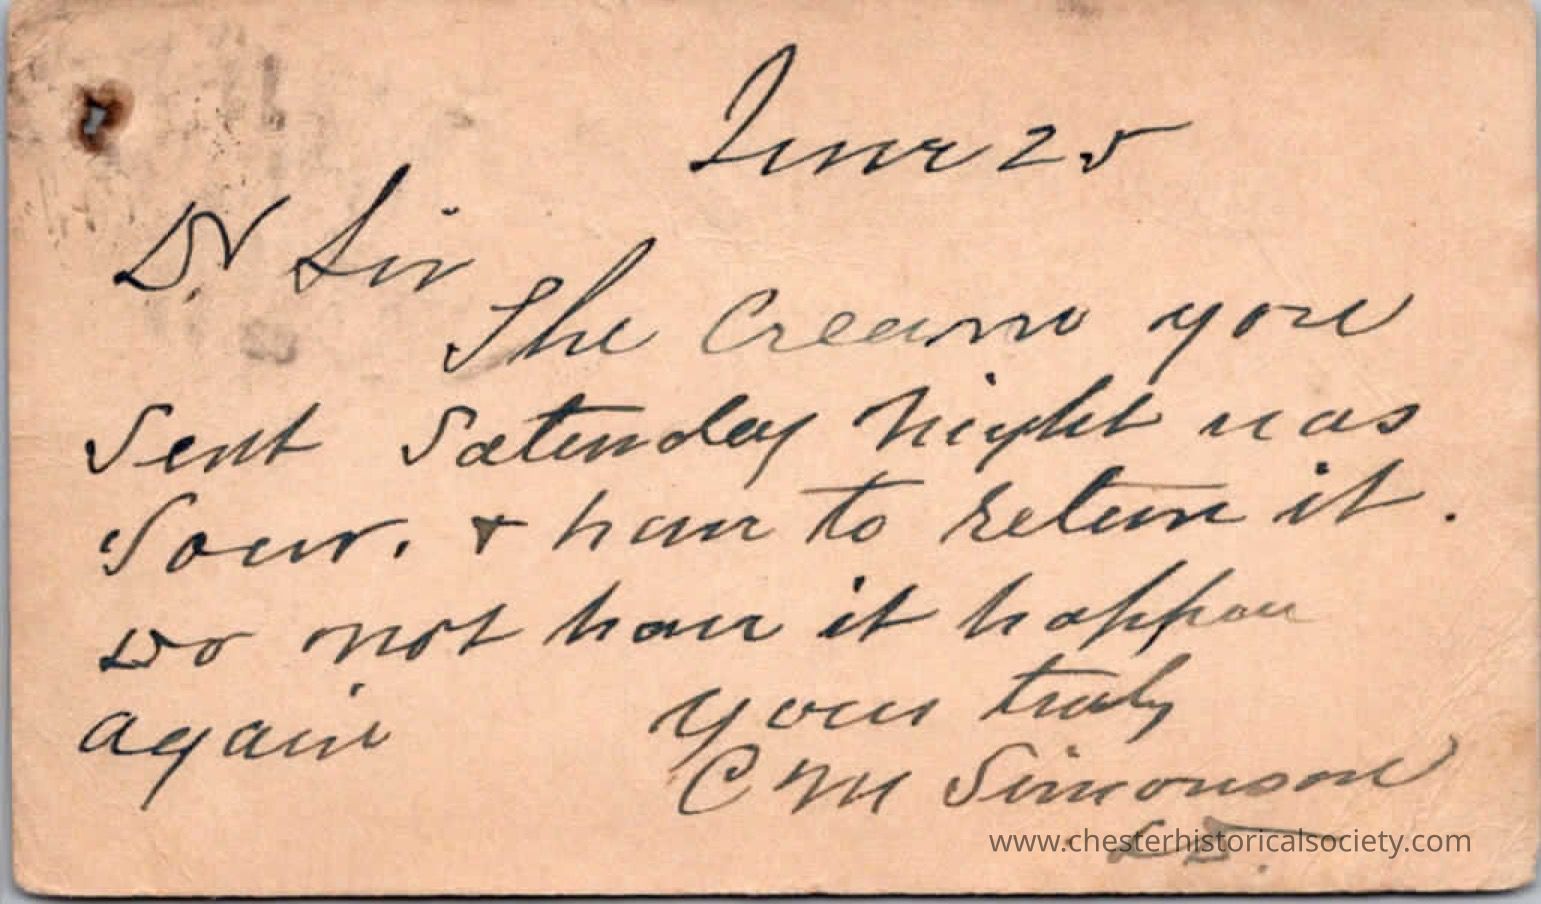 June 25
Dr Sir
The Cream you
Sent Saturday night was
Sour. & have to return it.
Do not have it happen
again yours truly
C M Simonson
www.chesterhistoricalsociety.com